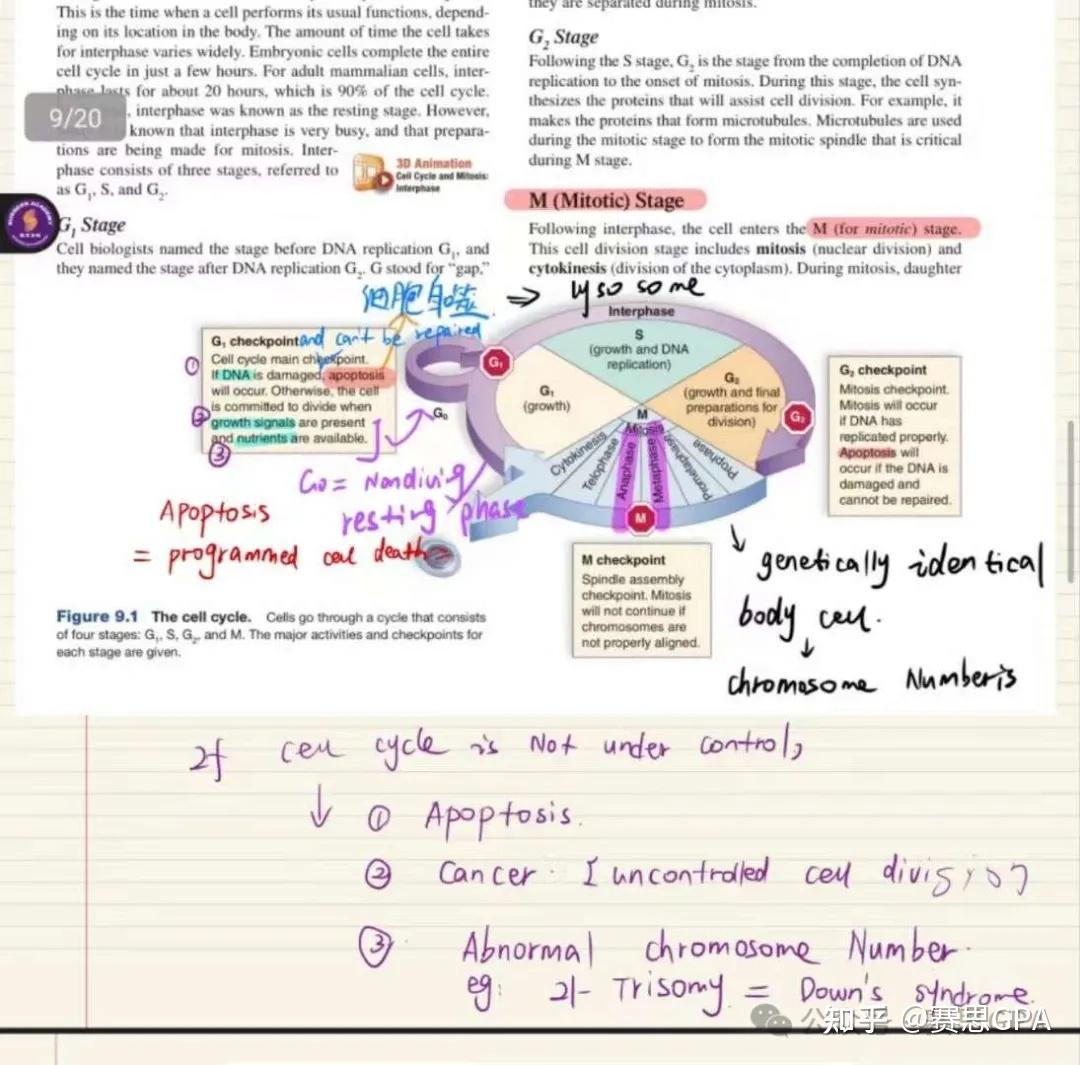 This is the time when a cell performs its usual functions, depend-
ing on its location in the body. The amount of time the cell takes
for interphase varies widely. Embryonic cells complete the entire
cell cycle in just a few hours. For adult mammalian cells, inter-
phase lasts for about 20 hours, which is 90% of the cell cycle.
9/20
, interphase was known as the resting stage. However,
known that interphase is very busy, and that prepara-
tions are being made for mitosis. Inter-
phase consists of three stages, referred to
as G₁, S, and G₂.
3D Animation
Cell Cycle and Mitosis:
Interphase
G₁ Stage
Cell biologists named the stage before DNA replication G₁, and
they named the stage after DNA replication G₂. G stood for “gap,”
they are separated during mitosis.
G₂ Stage
Following the S stage, G₂ is the stage from the completion of DNA
replication to the onset of mitosis. During this stage, the cell syn-
thesizes the proteins that will assist cell division. For example, it
makes the proteins that form microtubules. Microtubules are used
during the mitotic stage to form the mitotic spindle that is critical
during M stage.
M (Mitotic) Stage
Following interphase, the cell enters the M (for mitotic) stage.
This cell division stage includes mitosis (nuclear division) and
cytokinesis (division of the cytoplasm). During mitosis, daughter
细胞自噬 ⇒ lysosome
G₁ checkpoint and can't be repaired
① Cell cycle main checkpoint.
If DNA is damaged, apoptosis
will occur. Otherwise, the cell
② is committed to divide when
growth signals are present
and nutrients are available.
③
G₀ = Nondiving/
resting phase
Apoptosis
= programmed cell death
Interphase
S
(growth and DNA
replication)
G₁
G₁
(growth)
G₀
G₂
(growth and final
preparations for
division)
G₂
M
Mitosis
Cytokinesis
Telophase
Anaphase
Metaphase
Prometaphase
Prophase
M
G₂ checkpoint
Mitosis checkpoint.
Mitosis will occur
if DNA has
replicated properly.
Apoptosis will
occur if the DNA is
damaged and
cannot be repaired.
M checkpoint
Spindle assembly
checkpoint. Mitosis
will not continue if
chromosomes are
not properly aligned.
↓ genetically identical
body cell.
↓
chromosome Number is
Figure 9.1 The cell cycle. Cells go through a cycle that consists
of four stages: G₁, S, G₂, and M. The major activities and checkpoints for
each stage are given.
If cell cycle is Not under control,
↓ ① Apoptosis.
② Cancer. I uncontrolled cell division
③ Abnormal chromosome Number.
eg: 21- Trisomy = Down's syndrome.
知乎 @赛思GPA